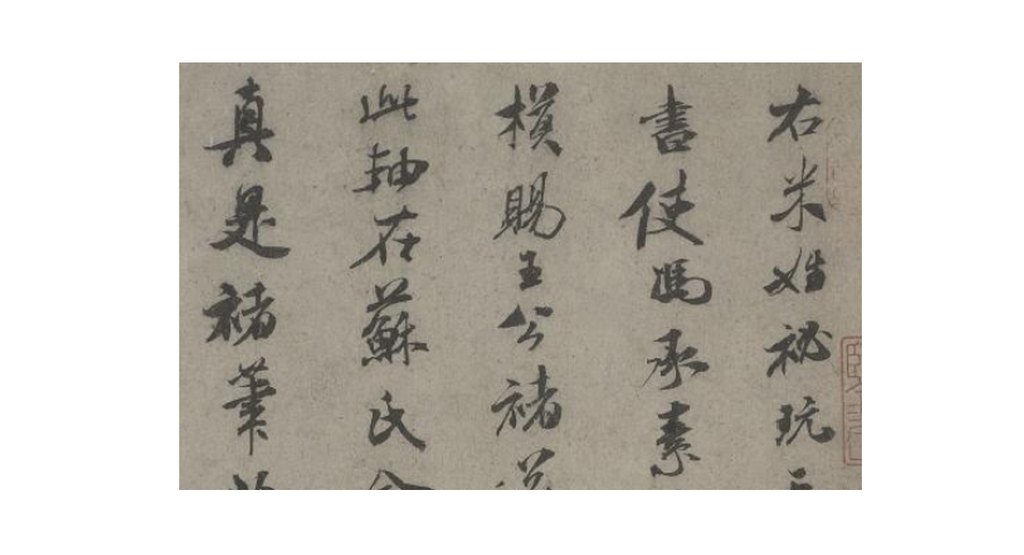 右米姓祕玩
書使馮承素
模賜王公褚
此軸在蘇氏
真是褚筆